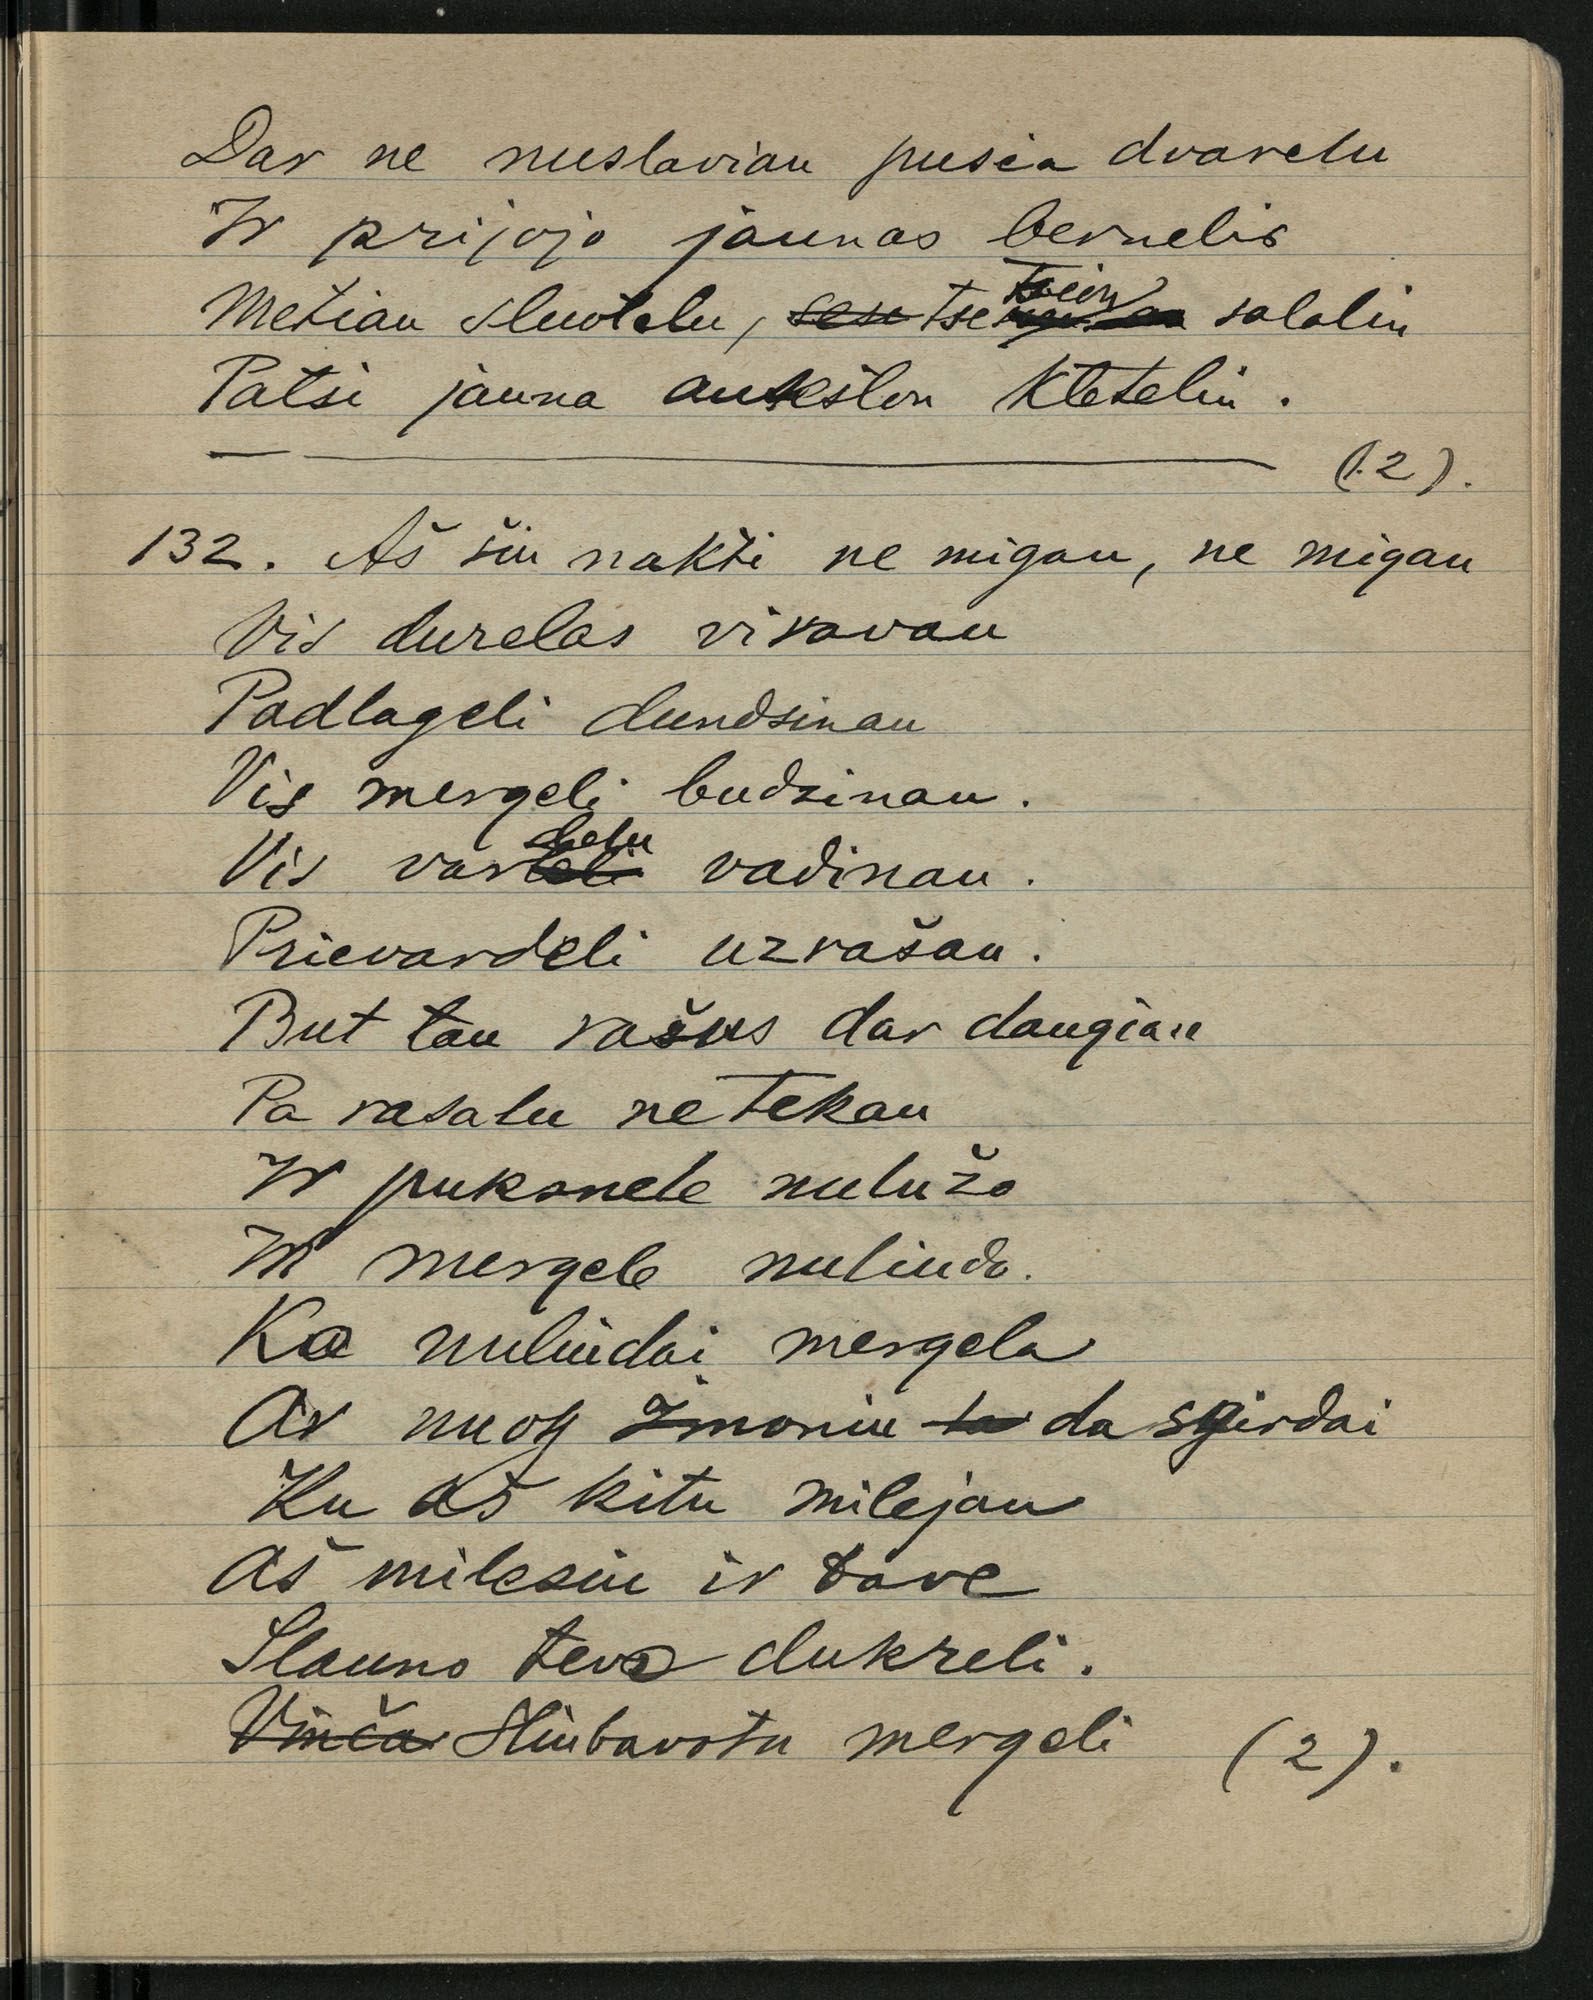 Dar ne nuslaviau pusia dvarelu
Ir prijojo jaunas bernelis
Metiau sluotelu, tse salalin
Patsi jauna aukšton kletelin.
(2).
132. Aš šiu nakti ne migau, ne migau
Vis durelas viravau
Padlageli dundsinau
Vis mergeli budzinau.
Vis vardelu vadinau.
Prievardeli uzrašau.
But tau rašus dar daugiau
Pa rasalu netekau
Ir puksnele nulužo
Ir mergele nuliudo.
Ko nuliudai mergela
Ar nuog žmoniu da sgirdai
Ku aš kitu milejau
Aš milesiu ir tave
Slauno teva dukreli.
Vinča Sliubavotu mergeli (2).